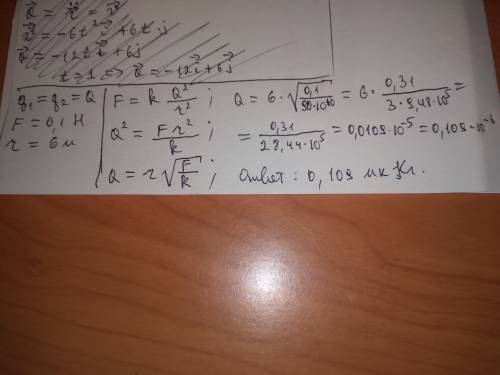 a⃗ = r⃗̈ = v⃗̇
v⃗ = -6t² i⃗ + 6t j
a⃗ = -12t i⃗ + 6j
t=1 => a⃗ = -12i⃗ + 6j⃗
q₁ = q₂ = Q
F = 0,1 Н
r = 6 м
F = k Q²/r² ;
Q² = F r²/k ;
Q = r √(F/k) ;
Q = 6 · √(0,1/(90·10¹⁰)) = 6 · 0,31/(3·9,48·10⁵) =
= 0,31/(28,44·10⁵) = 0,0109·10⁻⁵ = 0,109·10⁻⁶
ответ: 0,109 мк Кл.